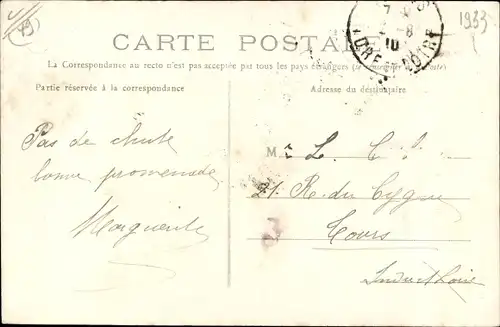 (49)
1933
7
8
10
INDRE-ET-LOIRE
CARTE POSTALE
La Correspondance au recto n'est pas acceptée par tous les pays étrangers (se renseigner à la Poste)
Partie réservée à la correspondance
Adresse du destinataire
Pas de chute
bonne promenade
Marguerite
M
L. C.
21 R. du Cygne
Tours
Indre et Loire